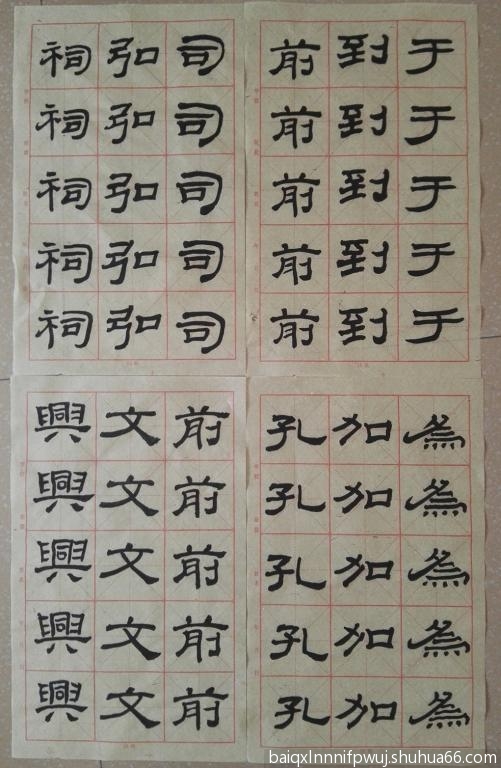 于于于于于
到到到到到
前前前前前
司司司司司
弘弘弘弘弘
祠祠祠祠祠
為為為為為
加加加加加
孔孔孔孔孔
前前前前前
文文文文文
興興興興興
baiqxlnnnifpwuj.shuhua66.com